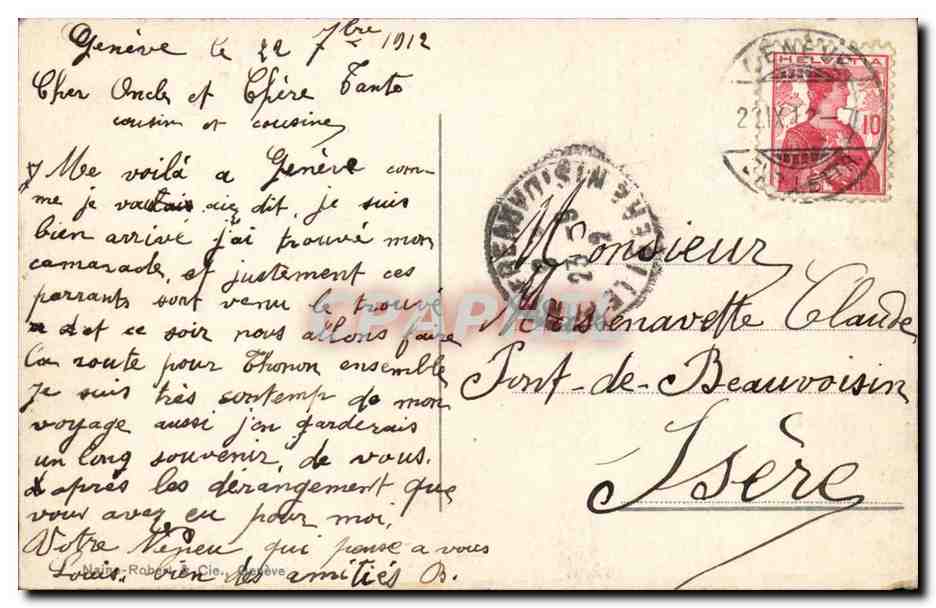 Genève le 22 7bre 1912
Cher Oncle et Chère Tante
cousin et cousine
Me voilà a Genève com-
me je vous dit, je suis
bien arrivé j'ai trouvé mon
camarade, et justement ces
parrants sont venu le trouvé
et ce soir nous allons faire
la route pour Thonon ensemble
je suis très contemp de mon
voyage aussi j'en garderais
un long souvenir, de vous.
d'après les dérangement que
vous avez eu pour moi,
Votre Neveu qui pense a vous
Louis, bien des amitiés B.
Naine-Robert & Cie., Genève
GENÈVE
22.IX.12
HELVETIA
10
PONT-DE-BEAUVOISIN
23-9
12
Monsieur
Claude
Pont-de-Beauvoisin
Isère